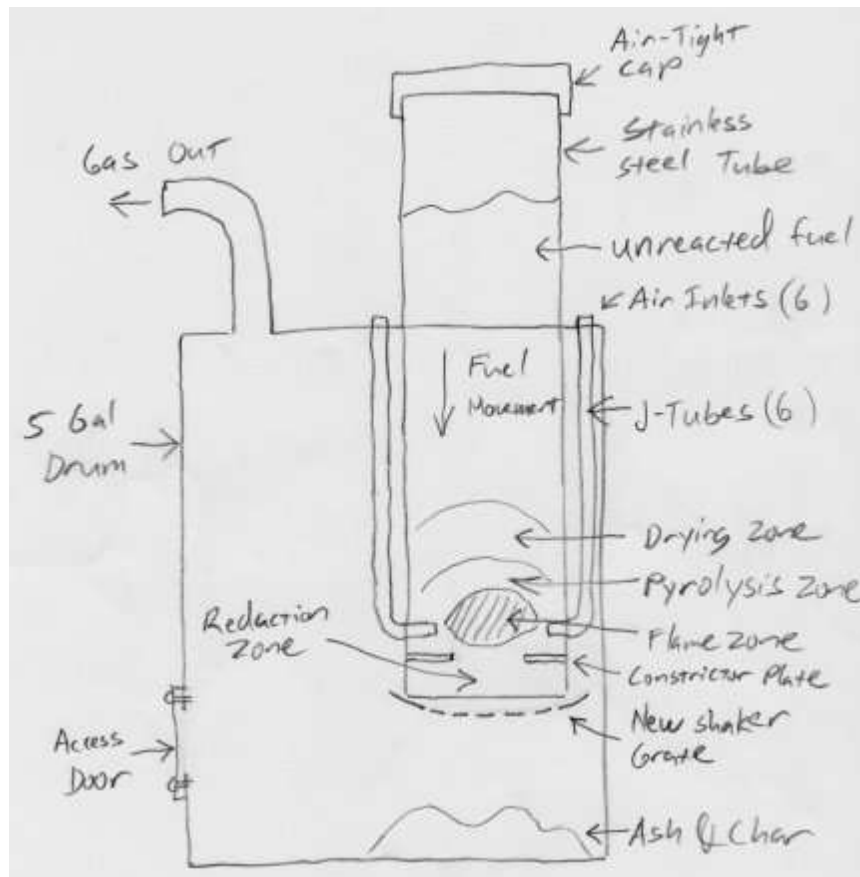 Air-Tight
Cap
Stainless
Steel Tube
Gas Out
unreacted fuel
Air Inlets (6)
Fuel
Movement
J-Tubes (6)
5 Gal
Drum
Drying Zone
Pyrolysis Zone
Reduction
Zone
Flame Zone
Constrictor Plate
New Shaker
Grate
Access
Door
Ash & Char